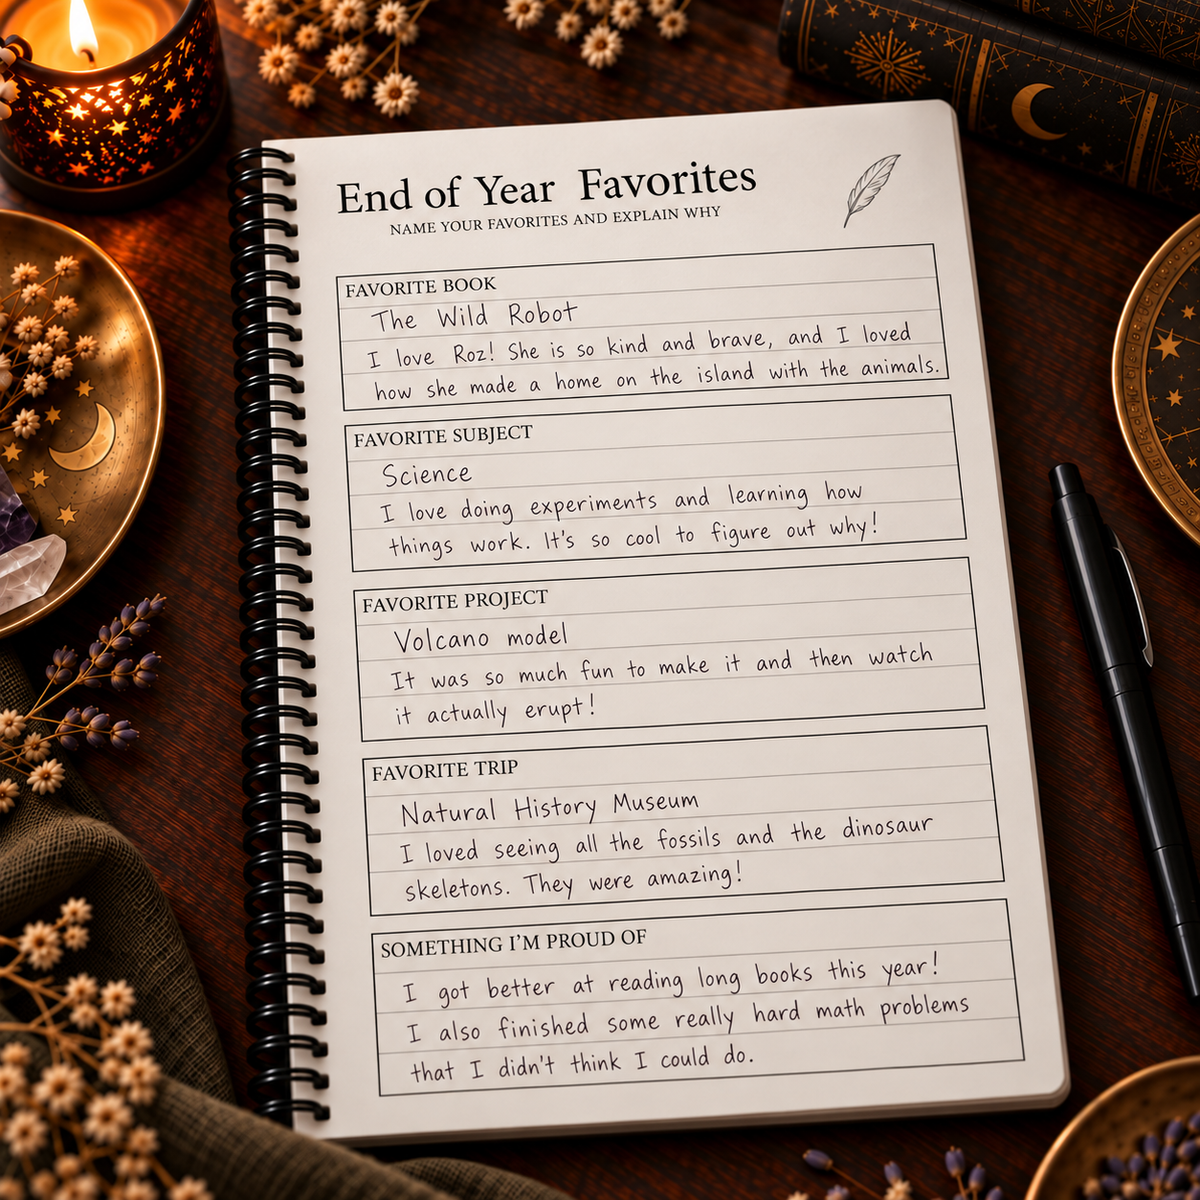 End of Year Favorites
NAME YOUR FAVORITES AND EXPLAIN WHY
FAVORITE BOOK
The Wild Robot
I love Roz! She is so kind and brave, and I loved
how she made a home on the island with the animals.
FAVORITE SUBJECT
Science
I love doing experiments and learning how
things work. It's so cool to figure out why!
FAVORITE PROJECT
Volcano model
It was so much fun to make it and then watch
it actually erupt!
FAVORITE TRIP
Natural History Museum
I loved seeing all the fossils and the dinosaur
skeletons. They were amazing!
SOMETHING I'M PROUD OF
I got better at reading long books this year!
I also finished some really hard math problems
that I didn't think I could do.